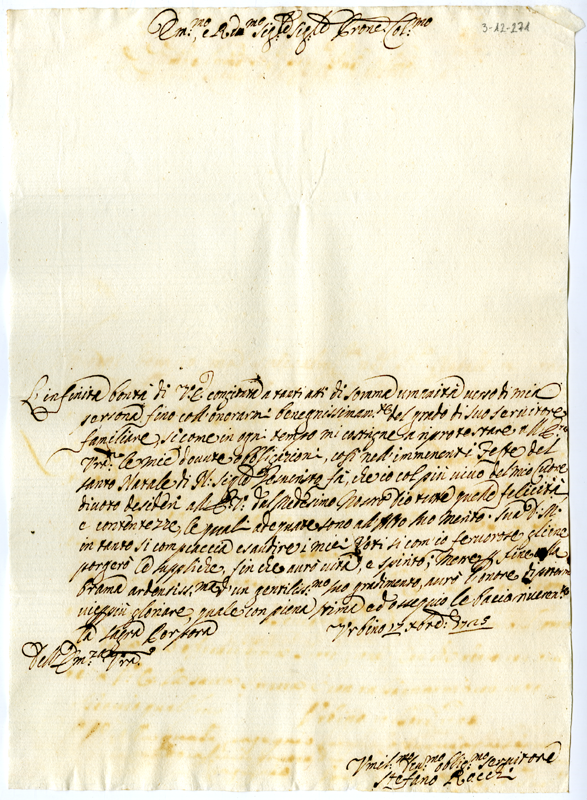 Em.mo, e R.mo Sig.re Sig.re Prone Col.mo
3-12-271
L'infinita bontà di V.E. congionta a tanti atti di somma umanità verso di mia
persona sino coll'onorarmi benegnissimam.te del grado di suo servitore
familiare, sicome in ogni tempo mi costrigne a riprotestare all'E.
V.ra le mie dovute obbligazioni, così nell'imminenti Feste del
Santo Natale di N. Sig.re fà, che io col più vivo del mio cuore
divoto desideri all'E.V. dal Medesimo tutte quelle felicità
e contentezze, le quali adequate sono all'Alto suo merito. Sua D. M.
in tanto si compiaccia esaudire i miei Voti si com'io fervorose gliene
porgerò le suppliche, sin che avrò vita, e spirito; Mentre
brama ardentiss.ma d'un gentiliss.mo suo gradimento, avrò l'onore
vieppiù gloriare, quale con piena stima ed ossequio le bacio riverente
la Sagra Porpora
Urbino 1725
Dell'Em.za V.ra
Umil.mo obblig.mo servitore
Stefano